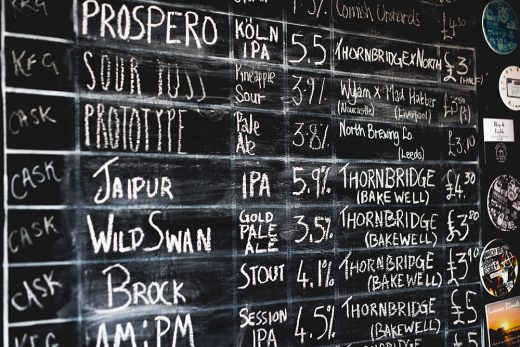 KEG PROSPERO KÖLN IPA 5.5 THORNBRIDGE X NORTH £3 (HALF)
KEG SOUR TOSS Pineapple Sour 3.9% Wylam x Mad Hatter (Newcastle) (Liverpool)
CASK PROTOTYPE Pale Ale 3.8% North Brewing Co. (Leeds) £3.10
CASK JAIPUR IPA 5.9% THORNBRIDGE (BAKEWELL) £4.30
CASK WILD SWAN GOLD PALE ALE 3.5% THORNBRIDGE (BAKEWELL) £3.80
CASK BROCK STOUT 4.1% THORNBRIDGE (BAKEWELL) £3.90
AM:PM SESSION IPA 4.5% THORNBRIDGE (BAKEWELL) £5